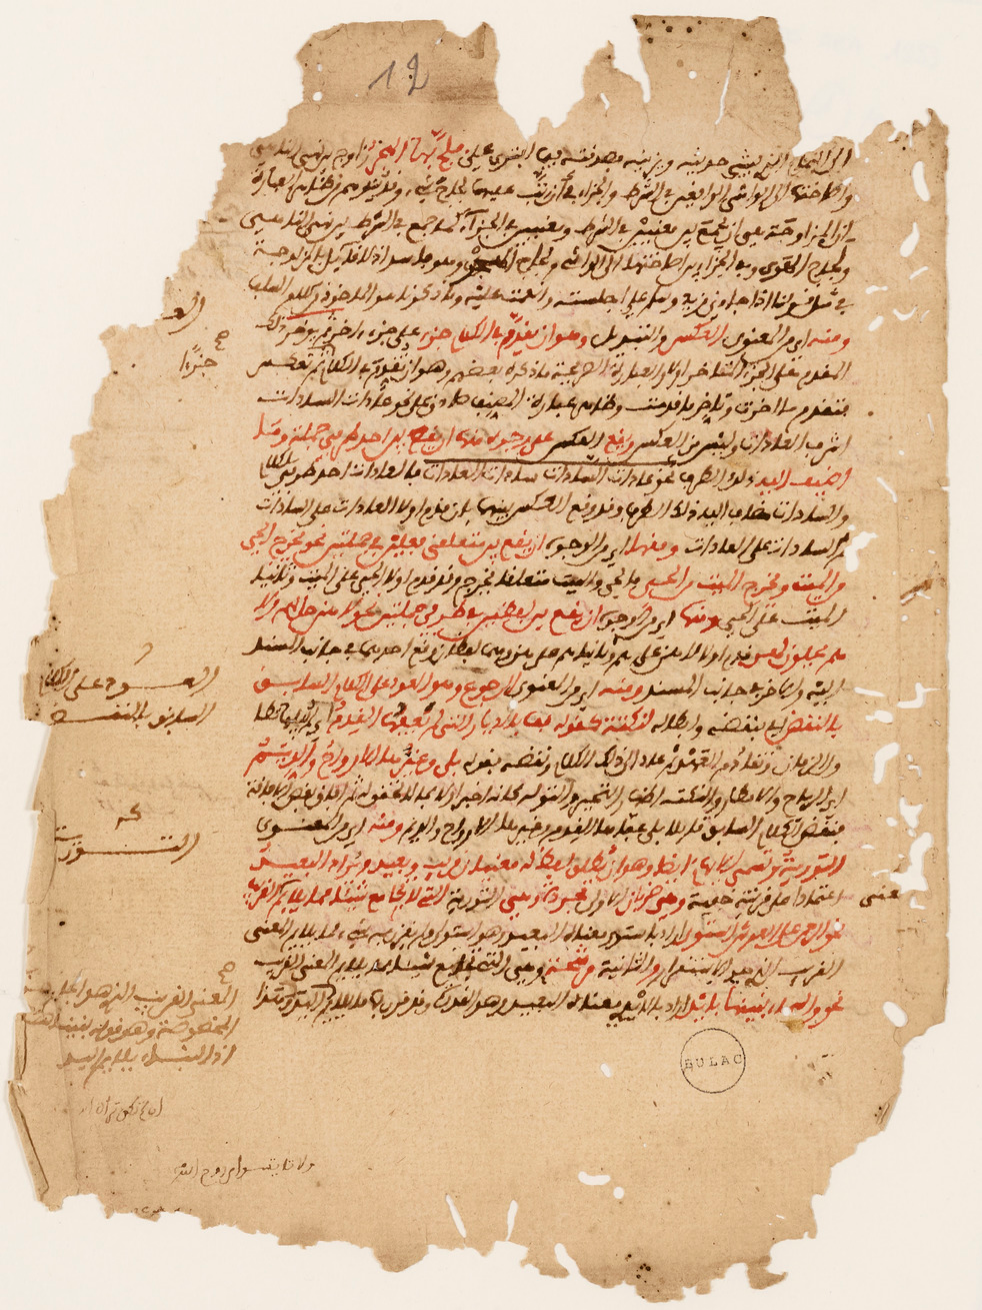 الى النمام الذي يشي حديثه ويزينه وصدقته فيما افترى علي فلج بها الهجر زاوج بين نهي الناهي
واصاختها الى الواشي الواقعين في الشرط والجزاء في ان رتب عليهما لجاج شيء وقد يتوهم من ظاهر العبارة
ان المزاوجة هي ان يجمع بين معنيين في الشرط ومعنيين في الجزاء كما جمع في الشرط بين نهي الناهي
ولجاج الهوى وفي الجزاء بين اصاختها الى الواشي ولجاج وهو فاسد اذ لا قايل بالمزاوجة
في مثل قولنا اذا جاءني زيد وسلم علي اجلسته وانعمت عليه وما ذكرنا هو الماخوذ من كلام السلف
ومنه اي من المعنوي العكس والتبديل وهو ان يقدم في الكلام جزء على جزء اخر ثم يوخر ذلك
المقدم على الجزء المتاخر اولا والعبارة الصريحة ما ذكره بعضهم وهو ان تقدم في الكلام ثم تعكس
فتقدم ما اخرت وتاخر ما قدمت وظاهر عبارة المصنف صادق على نحو عادات السادات
اشرف العادات وليس من العكس ويقع العكس على وجوه منها ان يقع بين احد طرفي جملة وما
اضيف اليه ذلك الطرف نحو عادات السادات سادات العادات فالعادات احد طرفي الكلام
والسادات مضاف اليه ذلك الطرف وقد وقع العكس بينهما بان قدم اولا العادات على السادات
ثم السادات على العادات ومنها اي من الوجوه ان يقع بين متعلقي فعلين في جملتين نحو يخرج الحي
من الميت ومخرج الميت من الحي فالحي والميت متعلقا يخرج وقد قدم اولا الحي على الميت وثانيا
الميت على الحي ومنها اي من الوجوه ان يقع بين لفظين في طرفي جملتين نحو لا هن حل لهم ولا
هم يحلون لهن قدم اولا هن على هم وثانيا هم على هن وهما لفظان وقع احدهما في جانب المسند
اليه والاخر في جانب المسند ومنه اي من المعنوي الرجوع وهو العود على الكلام السابق
بالنقض اي بنقضه وابطاله لنكتة كقوله قف بالديار التي لم يعفها القدم اي لم يبلها تطاول
الزمان وتقادم العهد ثم عاد الى ذلك الكلام ونقضه بقوله بلى وغيرها الارواح والديم
اي الرياح والامطار والنكتة اظهار التحير والتوله كانه اخبر اولا بما لا تحقق له ثم افاق بعض الافاقة
فنقض الكلام السابق قايلا بلى عفاها القدم وغيرها الارواح والديم ومنه اي من المعنوي
التورية وتسمى الايهام ايضا وهو ان يطلق لفظ له معنيان قريب وبعيد ويراد البعيد
اعتمادا على قرينة خفية وهي ضربان الاولى مجردة وهي التورية التي لا تجامع شيئا مما يلايم القريب
نحو الرحمن على العرش استوى اراد باستوى معناه البعيد وهو استولى ولم يقرن به شيء مما يلايم المعنى
القريب الذي هو الاستقرار والثانية مرشحة وهي التي تجامع شيئا مما يلايم المعنى القريب
نحو والسماء بنيناها بايد اراد بالايدي معناه البعيد وهو القدرة وقد قرن بها ما يلايم
العـ
صح
جزءا
العــود على الكلام
السابق بالنقض
التــورية
معنى
صح
المعنى القريب الذي هو
المخصوصة وهو قوله بنيناها
اذ البناء يلايم اليد
BULAC
12